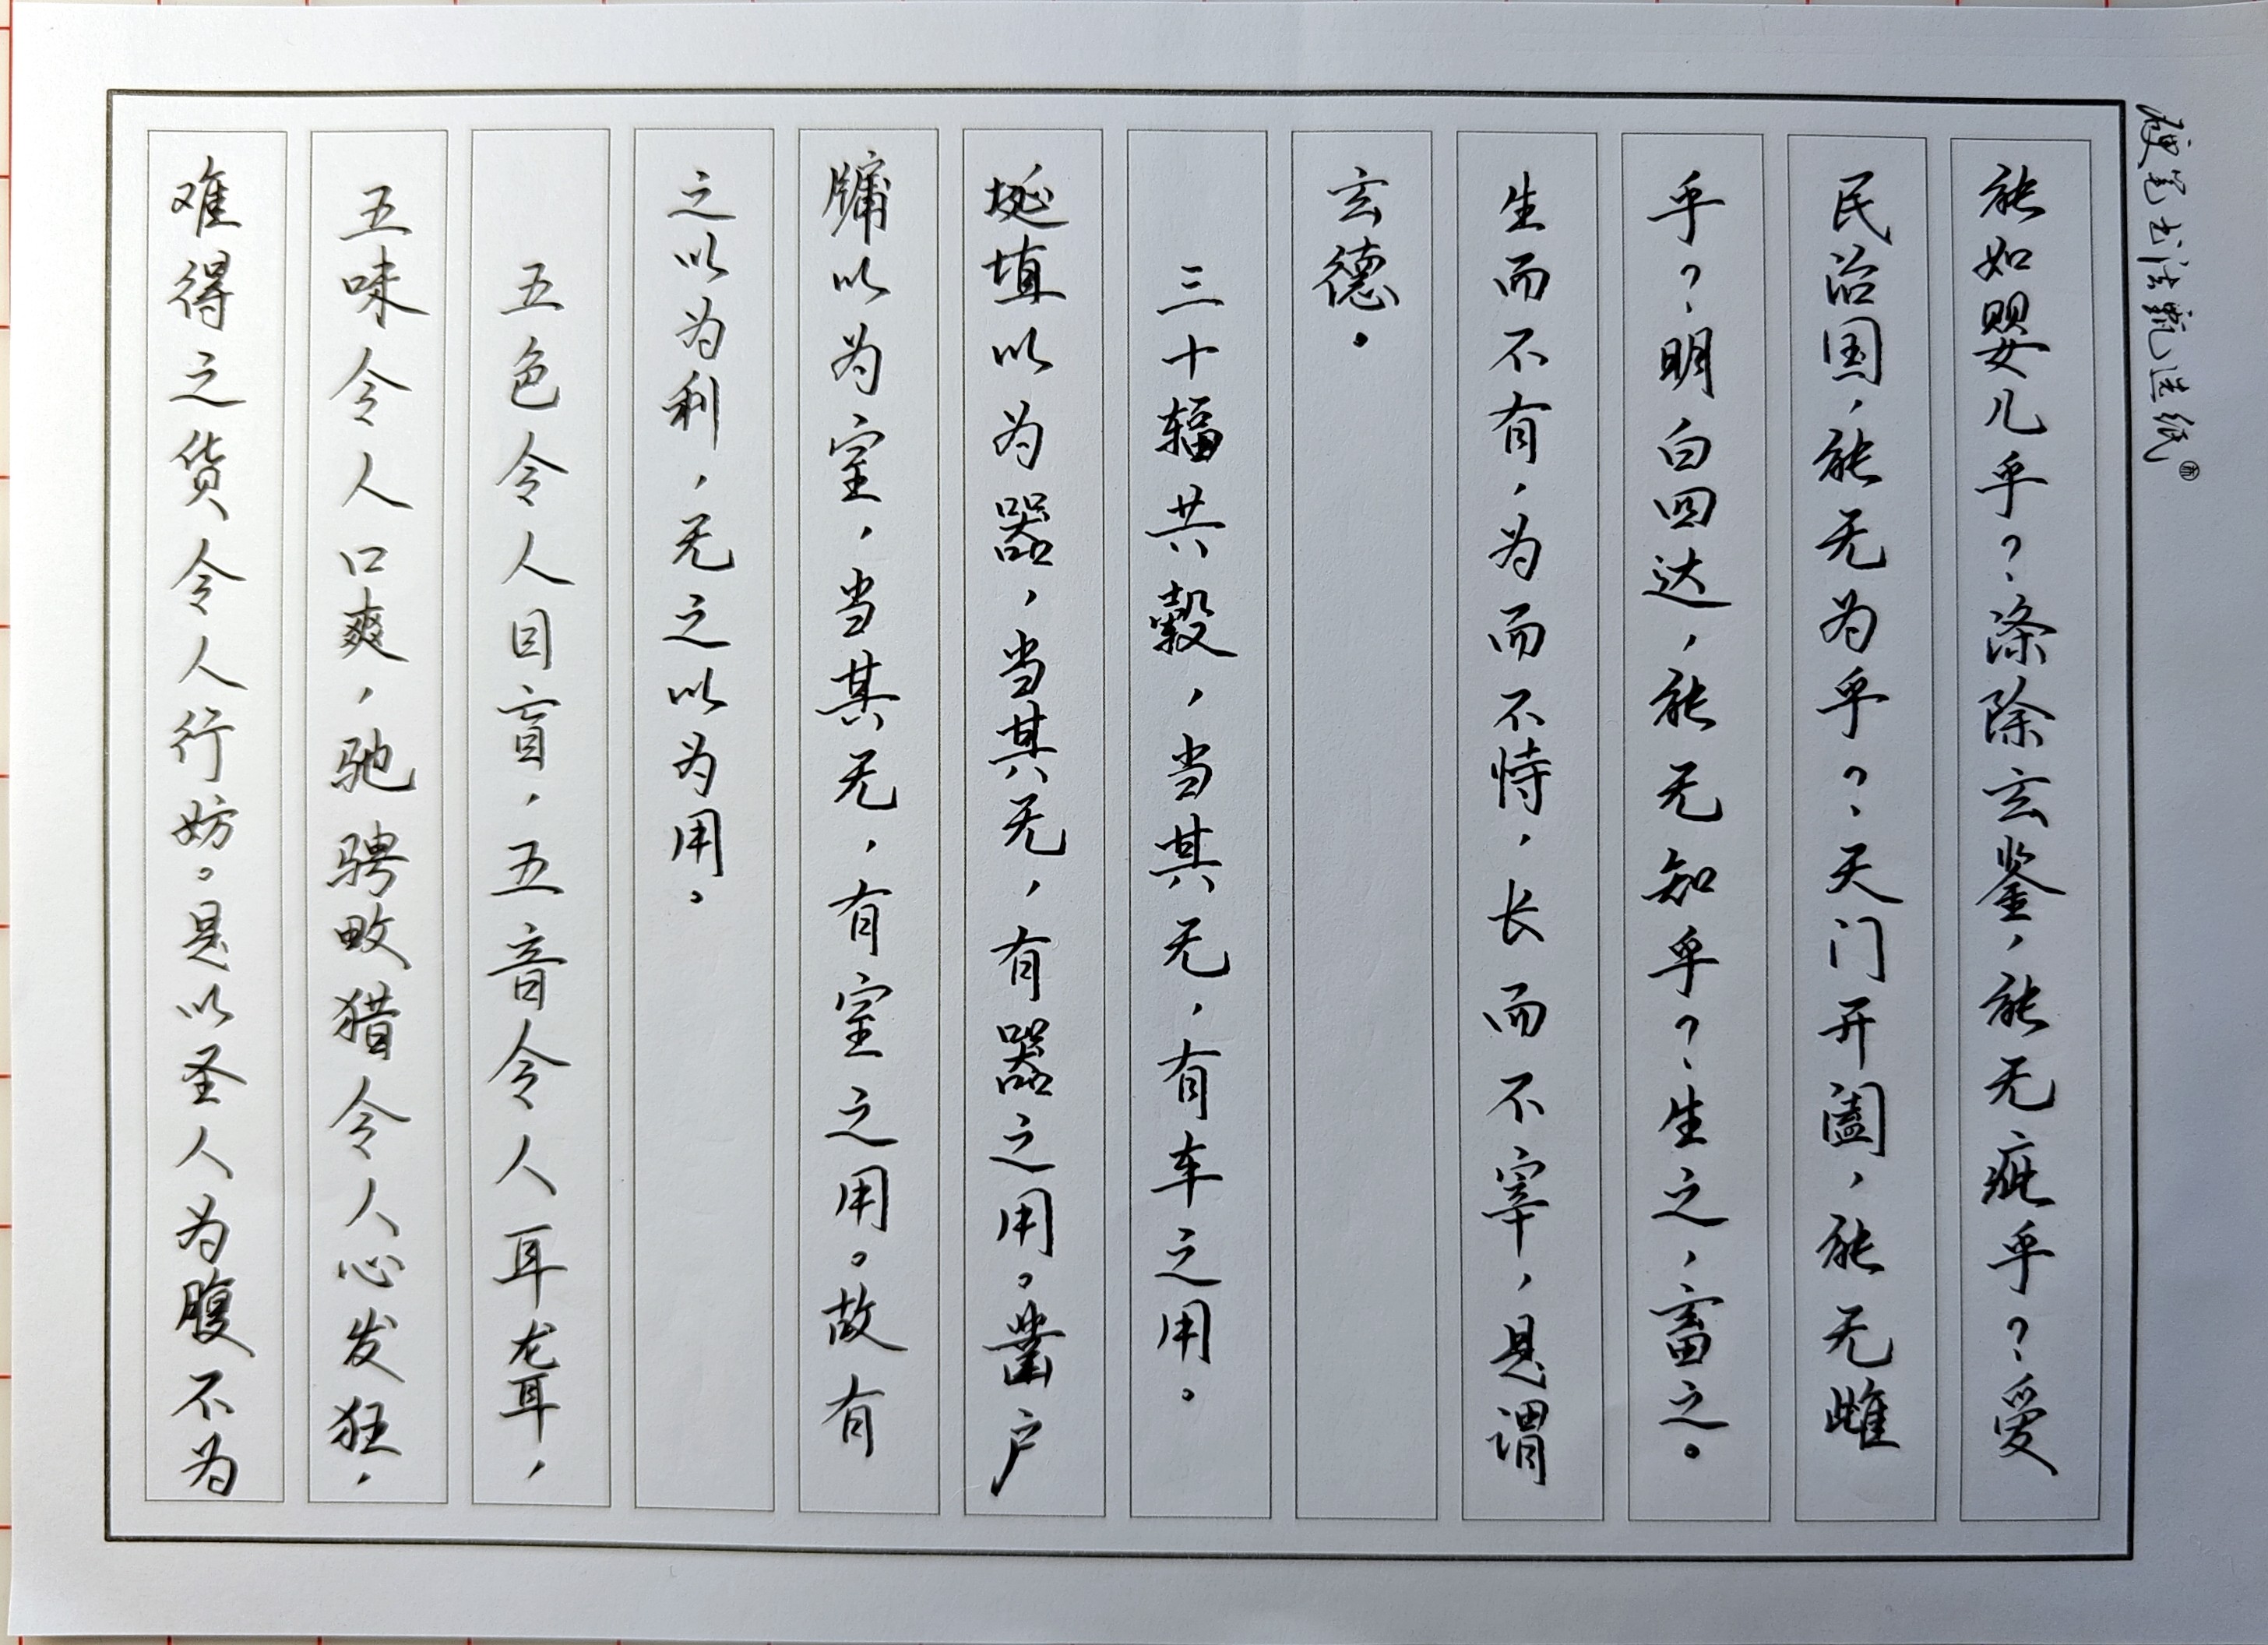 硬笔书法甄选纸
能如婴儿乎?涤除玄鉴,能无疵乎?爱
民治国,能无为乎?天门开阖,能无雌
乎?明白四达,能无知乎?生之,畜之。
生而不有,为而不恃,长而不宰,是谓
玄德。
三十辐共毂,当其无,有车之用。
埏埴以为器,当其无,有器之用。凿户
牖以为室,当其无,有室之用。故有
之以为利,无之以为用。
五色令人目盲,五音令人耳聋,
五味令人口爽,驰骋畋猎令人心发狂,
难得之货令人行妨。是以圣人为腹不为